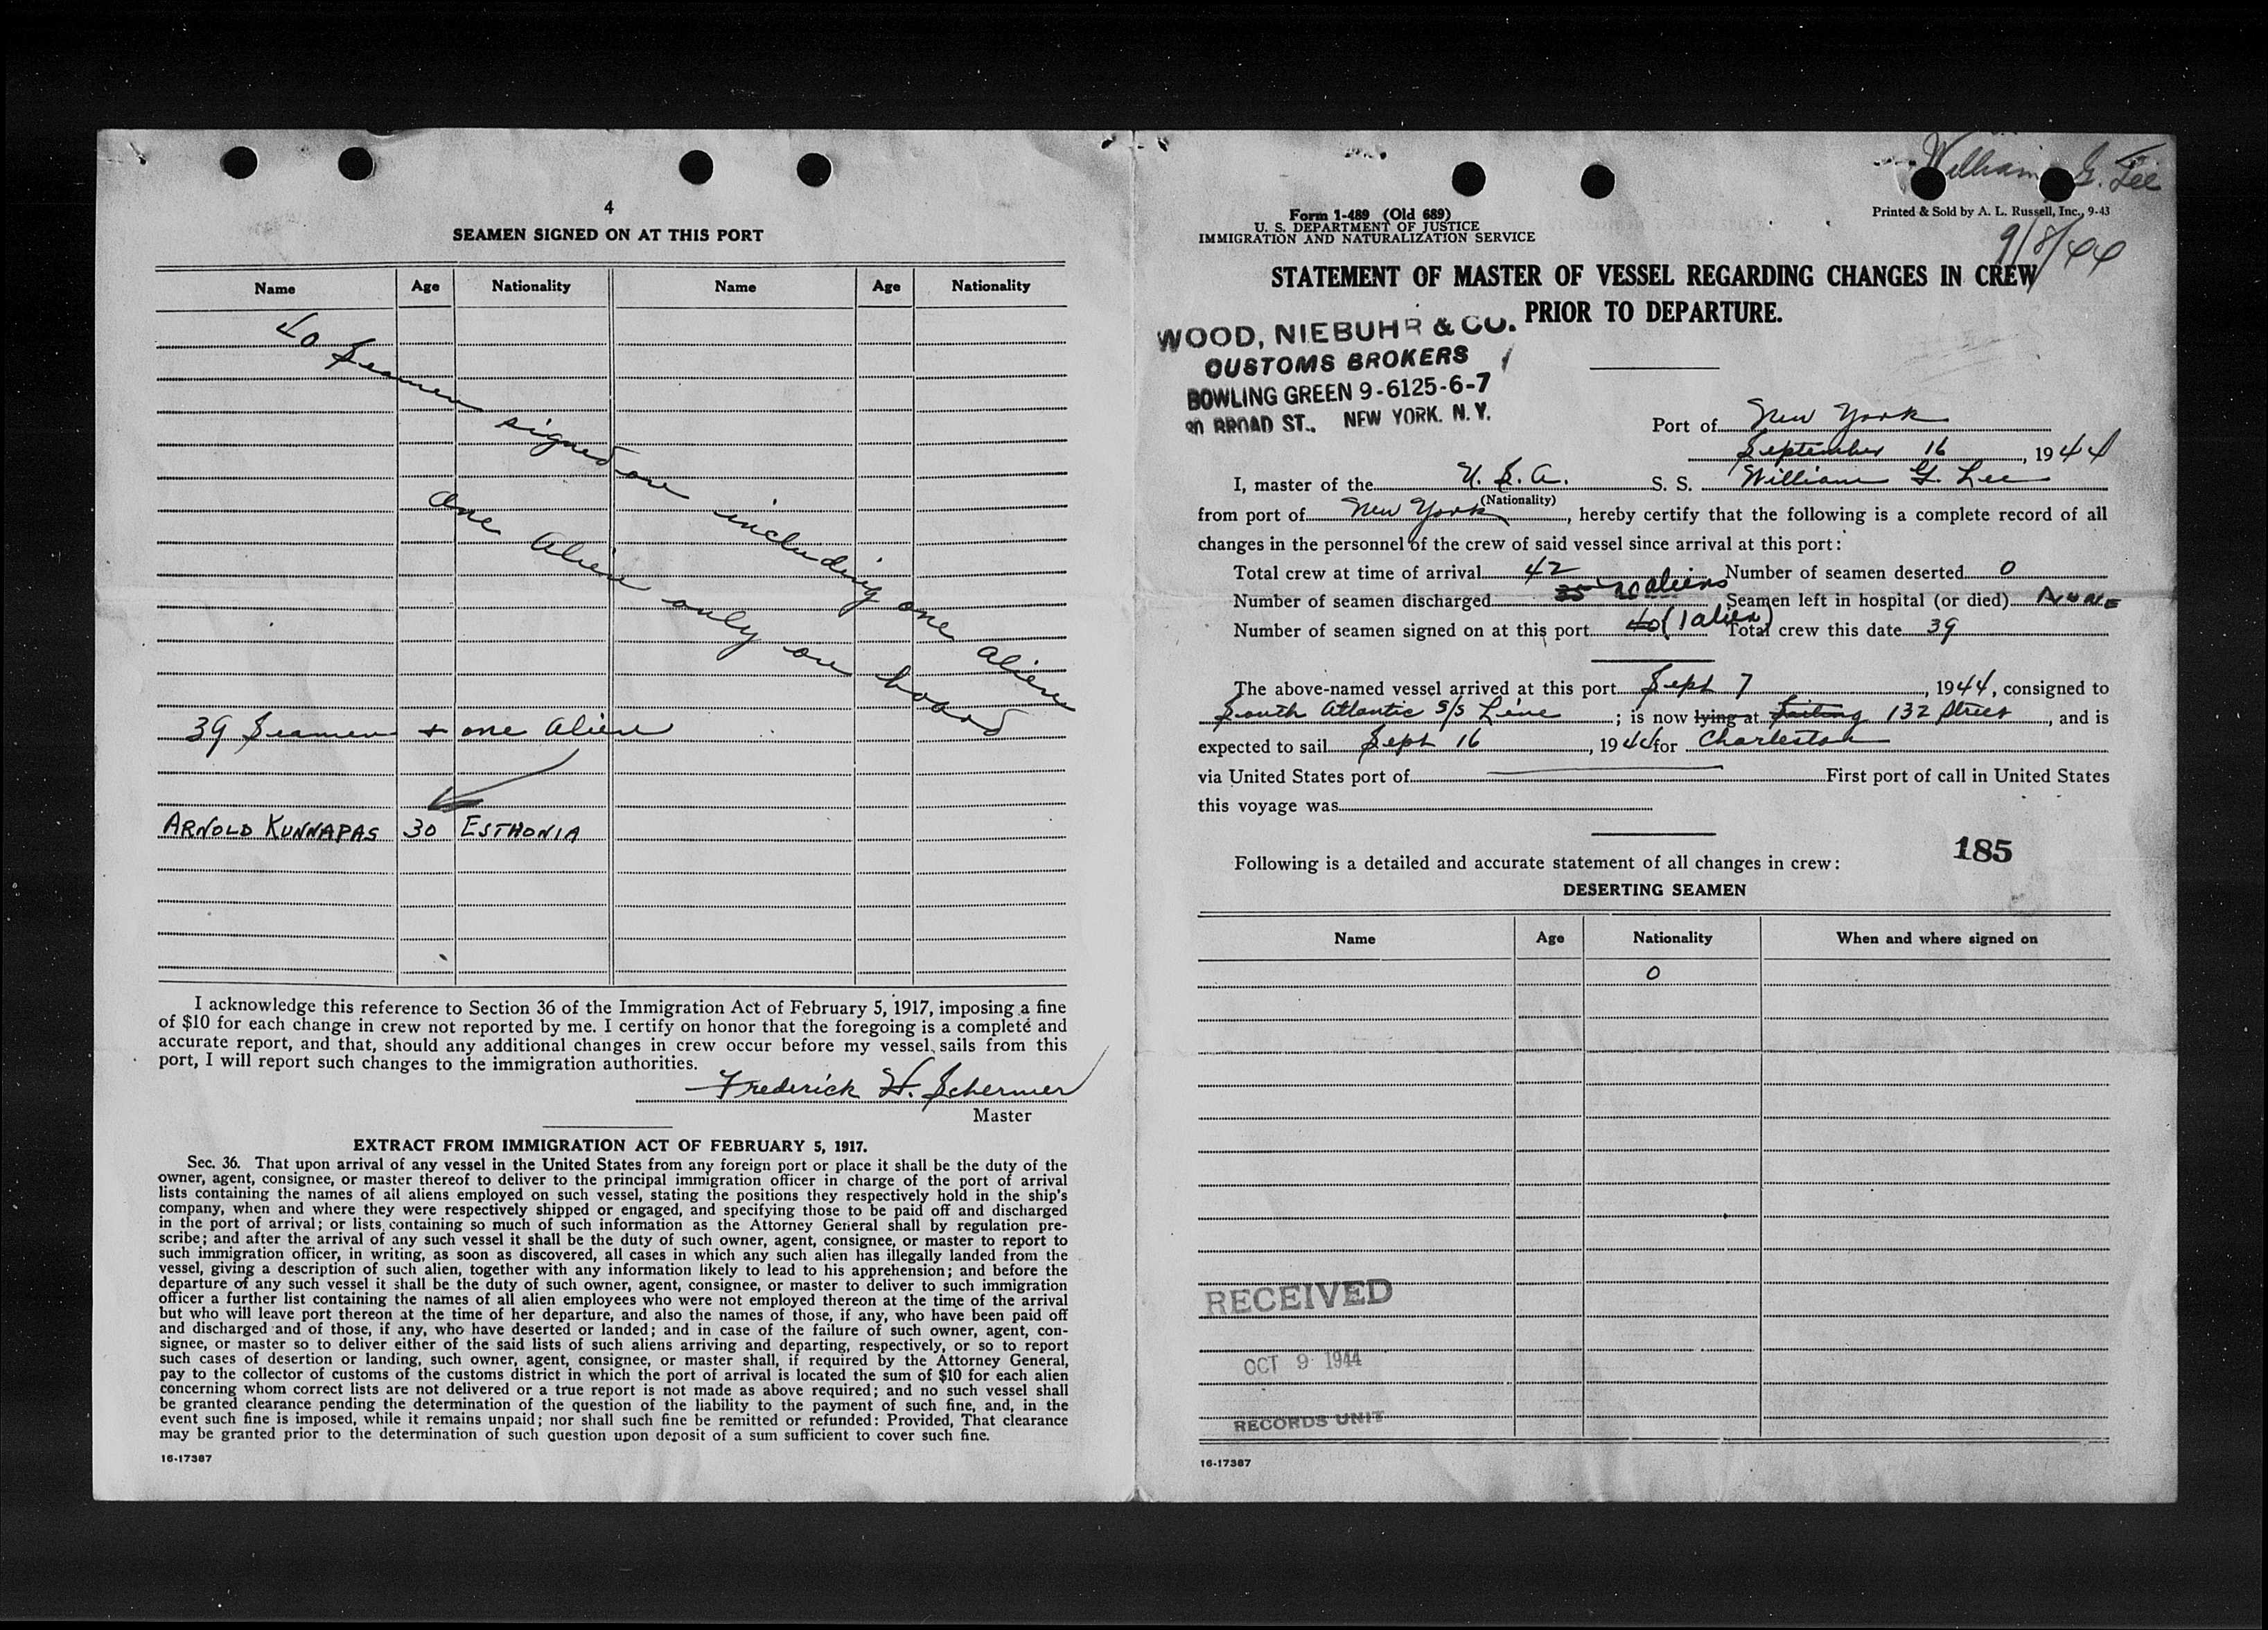 4
SEAMEN SIGNED ON AT THIS PORT
Name Age Nationality Name Age Nationality
40 Seamen signed on including one alien
one alien only on board
39 Seamen + one alien
ARNOLD KUNNAPAS 30 ESTHONIA
I acknowledge this reference to Section 36 of the Immigration Act of February 5, 1917, imposing a fine
of $10 for each change in crew not reported by me. I certify on honor that the foregoing is a complete and
accurate report, and that, should any additional changes in crew occur before my vessel sails from this
port, I will report such changes to the immigration authorities.
Frederick H. Schermer
Master
EXTRACT FROM IMMIGRATION ACT OF FEBRUARY 5, 1917.
Sec. 36. That upon arrival of any vessel in the United States from any foreign port or place it shall be the duty of the
owner, agent, consignee, or master thereof to deliver to the principal immigration officer in charge of the port of arrival
lists containing the names of all aliens employed on such vessel, stating the positions they respectively hold in the ship's
company, when and where they were respectively shipped or engaged, and specifying those to be paid off and discharged
in the port of arrival; or lists containing so much of such information as the Attorney General shall by regulation pre-
scribe; and after the arrival of any such vessel it shall be the duty of such owner, agent, consignee, or master to report to
such immigration officer, in writing, as soon as discovered, all cases in which any such alien has illegally landed from the
vessel, giving a description of such alien, together with any information likely to lead to his apprehension; and before the
departure of any such vessel it shall be the duty of such owner, agent, consignee, or master to deliver to such immigration
officer a further list containing the names of all alien employees who were not employed thereon at the time of the arrival
but who will leave port thereon at the time of her departure, and also the names of those, if any, who have been paid off
and discharged and of those, if any, who have deserted or landed; and in case of the failure of such owner, agent, con-
signee, or master so to deliver either of the said lists of such aliens arriving and departing, respectively, or so to report
such cases of desertion or landing, such owner, agent, consignee, or master shall, if required by the Attorney General,
pay to the collector of customs of the customs district in which the port of arrival is located the sum of $10 for each alien
concerning whom correct lists are not delivered or a true report is not made as above required; and no such vessel shall
be granted clearance pending the determination of the question of the liability to the payment of such fine, and, in the
event such fine is imposed, while it remains unpaid; nor shall such fine be remitted or refunded: Provided, That clearance
may be granted prior to the determination of such question upon deposit of a sum sufficient to cover such fine.
16-17387
William G. Lee
Form 1-489 (Old 689)
U. S. DEPARTMENT OF JUSTICE
IMMIGRATION AND NATURALIZATION SERVICE
Printed & Sold by A. L. Russell, Inc., 9-43
9/8/44
STATEMENT OF MASTER OF VESSEL REGARDING CHANGES IN CREW
PRIOR TO DEPARTURE.
WOOD, NIEBUHR & CO.
CUSTOMS BROKERS
BOWLING GREEN 9-6125-6-7
BROAD ST., NEW YORK, N. Y.
Port of New York
September 16, 1944
I, master of the U. S. A. S. S. William G. Lee
(Nationality)
from port of New York, hereby certify that the following is a complete record of all
changes in the personnel of the crew of said vessel since arrival at this port:
Total crew at time of arrival 42 Number of seamen deserted 0
Number of seamen discharged aliens Seamen left in hospital (or died) NONE
Number of seamen signed on at this port 40 (1 alien) Total crew this date 39
The above-named vessel arrived at this port Sept 7, 1944, consigned to
South Atlantic S/S Line; is now lying at 132 Street, and is
expected to sail Sept 16, 1944 for Charleston
via United States port of First port of call in United States
this voyage was
185
Following is a detailed and accurate statement of all changes in crew:
DESERTING SEAMEN
Name Age Nationality When and where signed on
0
RECEIVED
OCT 9 1944
RECORDS UNIT
16-17387